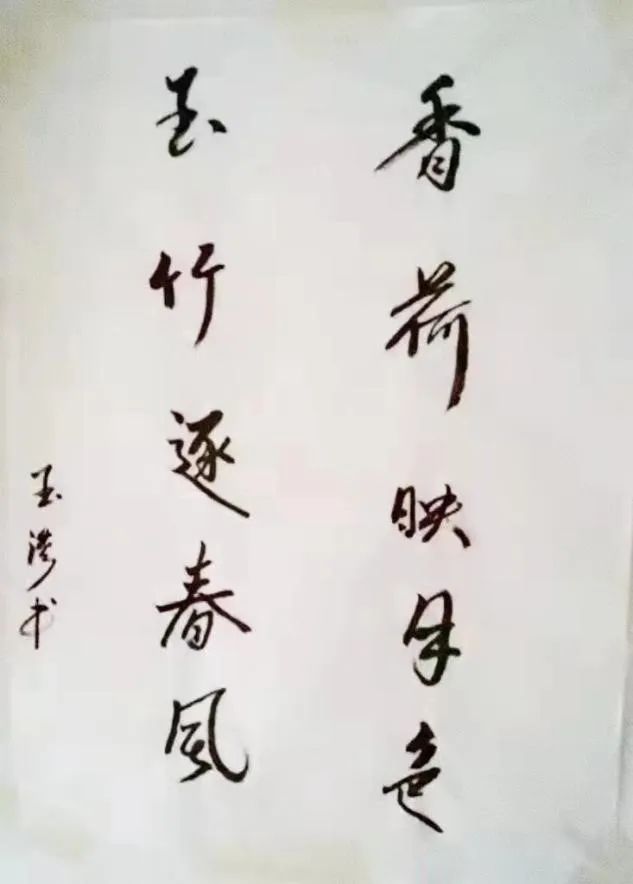 香荷映月色
玉竹逐春风
玉洪书